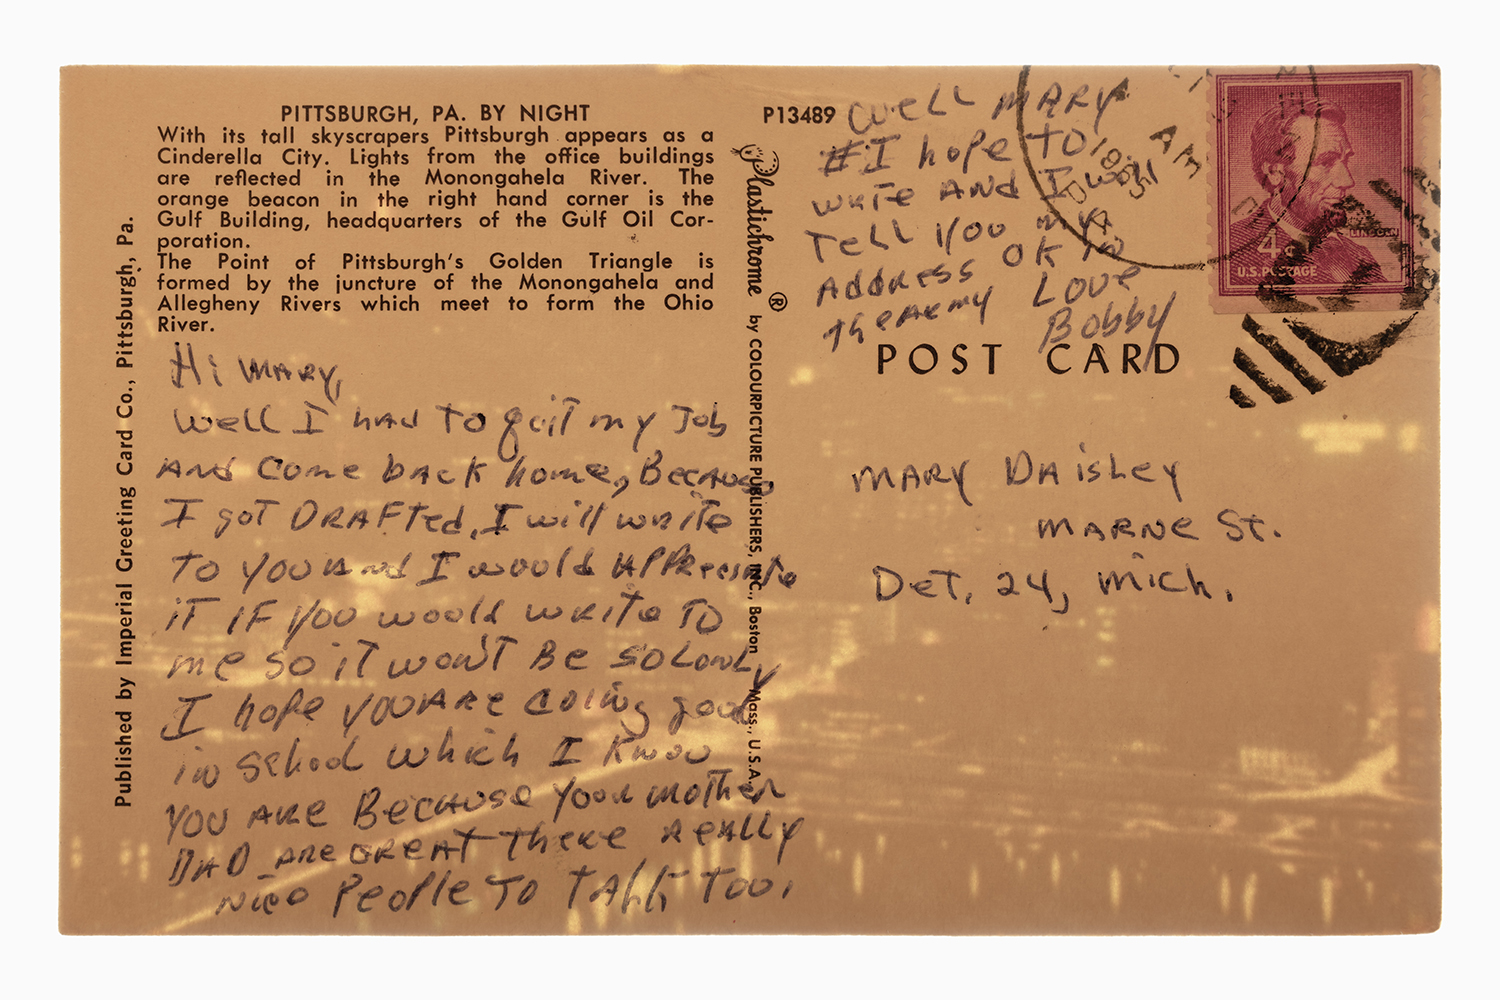 PITTSBURGH, PA. BY NIGHT
With its tall skyscrapers Pittsburgh appears as a
Cinderella City. Lights from the office buildings
are reflected in the Monongahela River. The
orange beacon in the right hand corner is the
Gulf Building, headquarters of the Gulf Oil Cor-
poration.
The Point of Pittsburgh's Golden Triangle is
formed by the juncture of the Monongahela and
Allegheny Rivers which meet to form the Ohio
River.
Published by Imperial Greeting Card Co., Pittsburgh, Pa.
Hi MARY,
Well I HAD TO quit my Job
AND Come back home, Because
I got DRAFTed, I will write
TO YOU And I would APPReciate
iT IF YOU would write TO
me so iT won'T Be so LonLy
I hope YOU ARE doing good
in School which I Know
YOU ARE BECAUSE Your mother
DAD ARE GREAT There REALLY
Nice People TO TALK TOO.
P13489
Plastichrome ® by COLOURPICTURE PUBLISHERS, INC., Boston Mass., U.S.A.
Well MARY
I hope TO
write AND I will
TELL YOU my
ADDRESS OK IN
the ARMY Love
Bobby
POST CARD
AM
1965
4¢
LINCOLN
U.S. POSTAGE
MARY DAisLey
MARNE St.
DeT. 24, Mich.